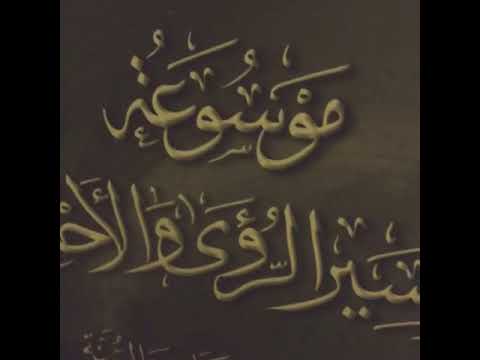 مَوْسُوعَةُ
سيرالرُّؤَى وَالأَح